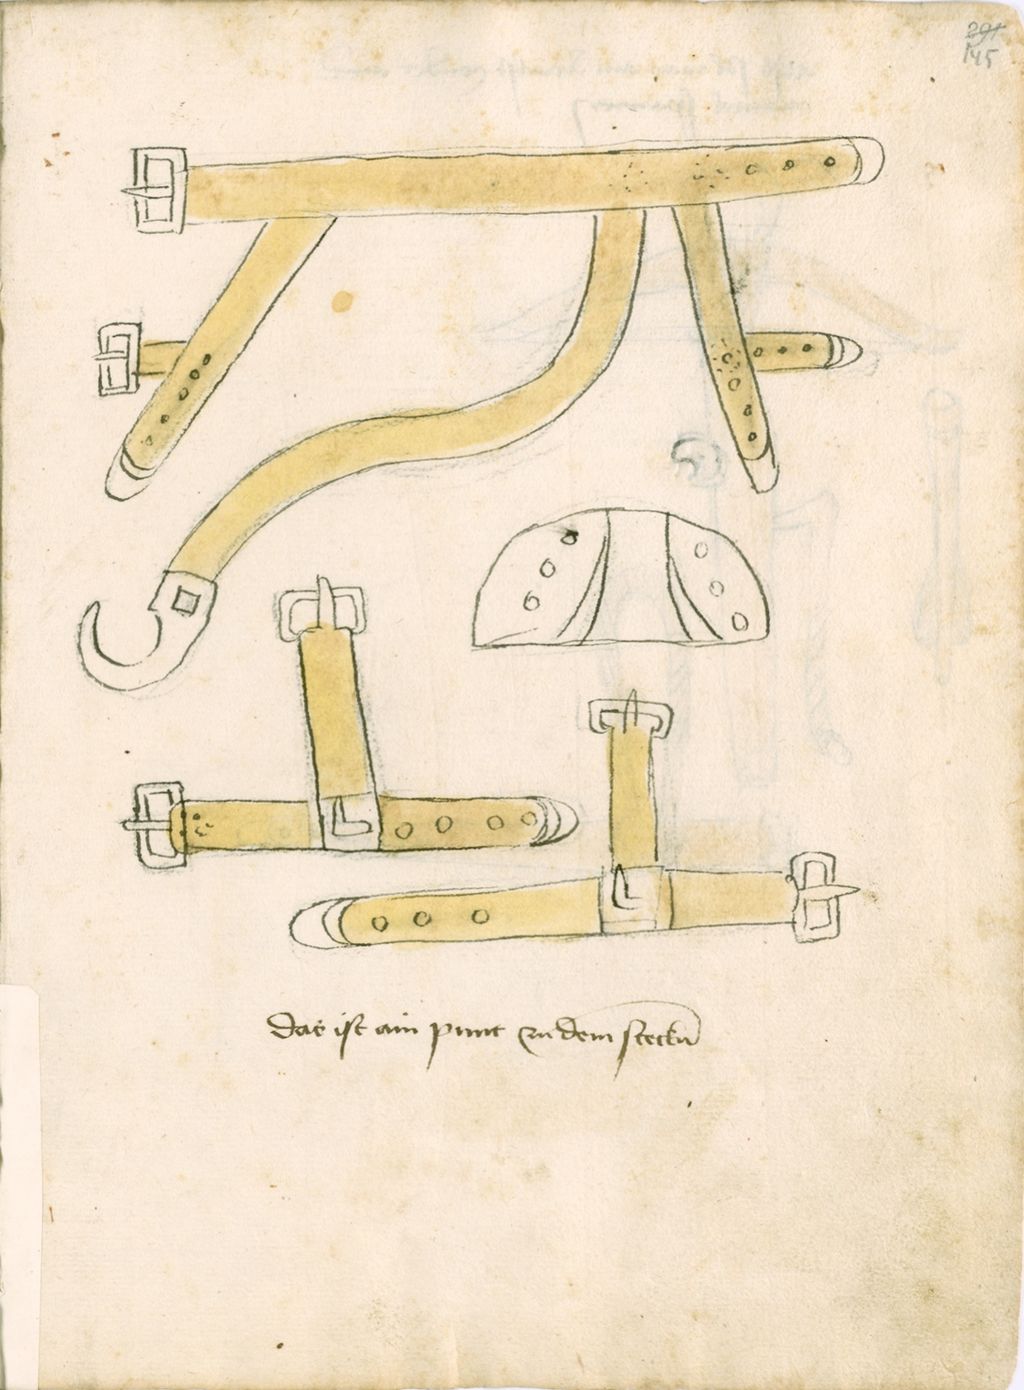 291
145
das ist ain punt zu dem steckn̄